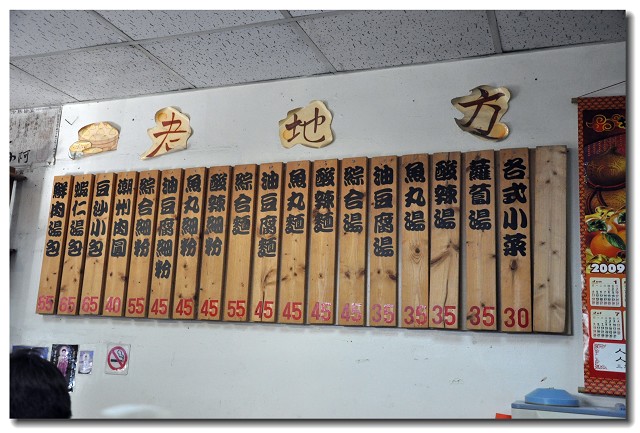 老地方
鮮肉湯包 65
蝦仁湯包 65
豆沙小包 65
潮州肉圓 40
綜合細粉 55
油豆腐細粉 45
魚丸細粉 45
酸辣細粉 45
綜合麵 55
油豆腐麵 45
魚丸麵 45
酸辣麵 45
綜合湯 45
油豆腐湯 35
魚丸湯 35
酸辣湯 35
蘿蔔湯 35
各式小菜 30
2009